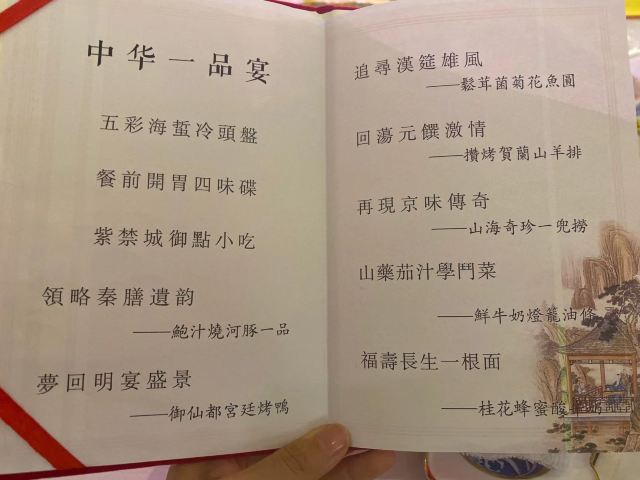 中华一品宴
五彩海蜇冷頭盤
餐前開胃四味碟
紫禁城御點小吃
領略秦膳遺韵
——鮑汁燒河豚一品
夢回明宴盛景
——御仙都宮廷烤鴨
追尋漢筵雄風
——鬆茸菌菊花魚圓
回蕩元饌激情
——攢烤賀蘭山羊排
再現京味傳奇
——山海奇珍一兜撈
山藥茄汁學鬥菜
——鮮牛奶燈籠油條
福壽長生一根面
——桂花蜂蜜酸